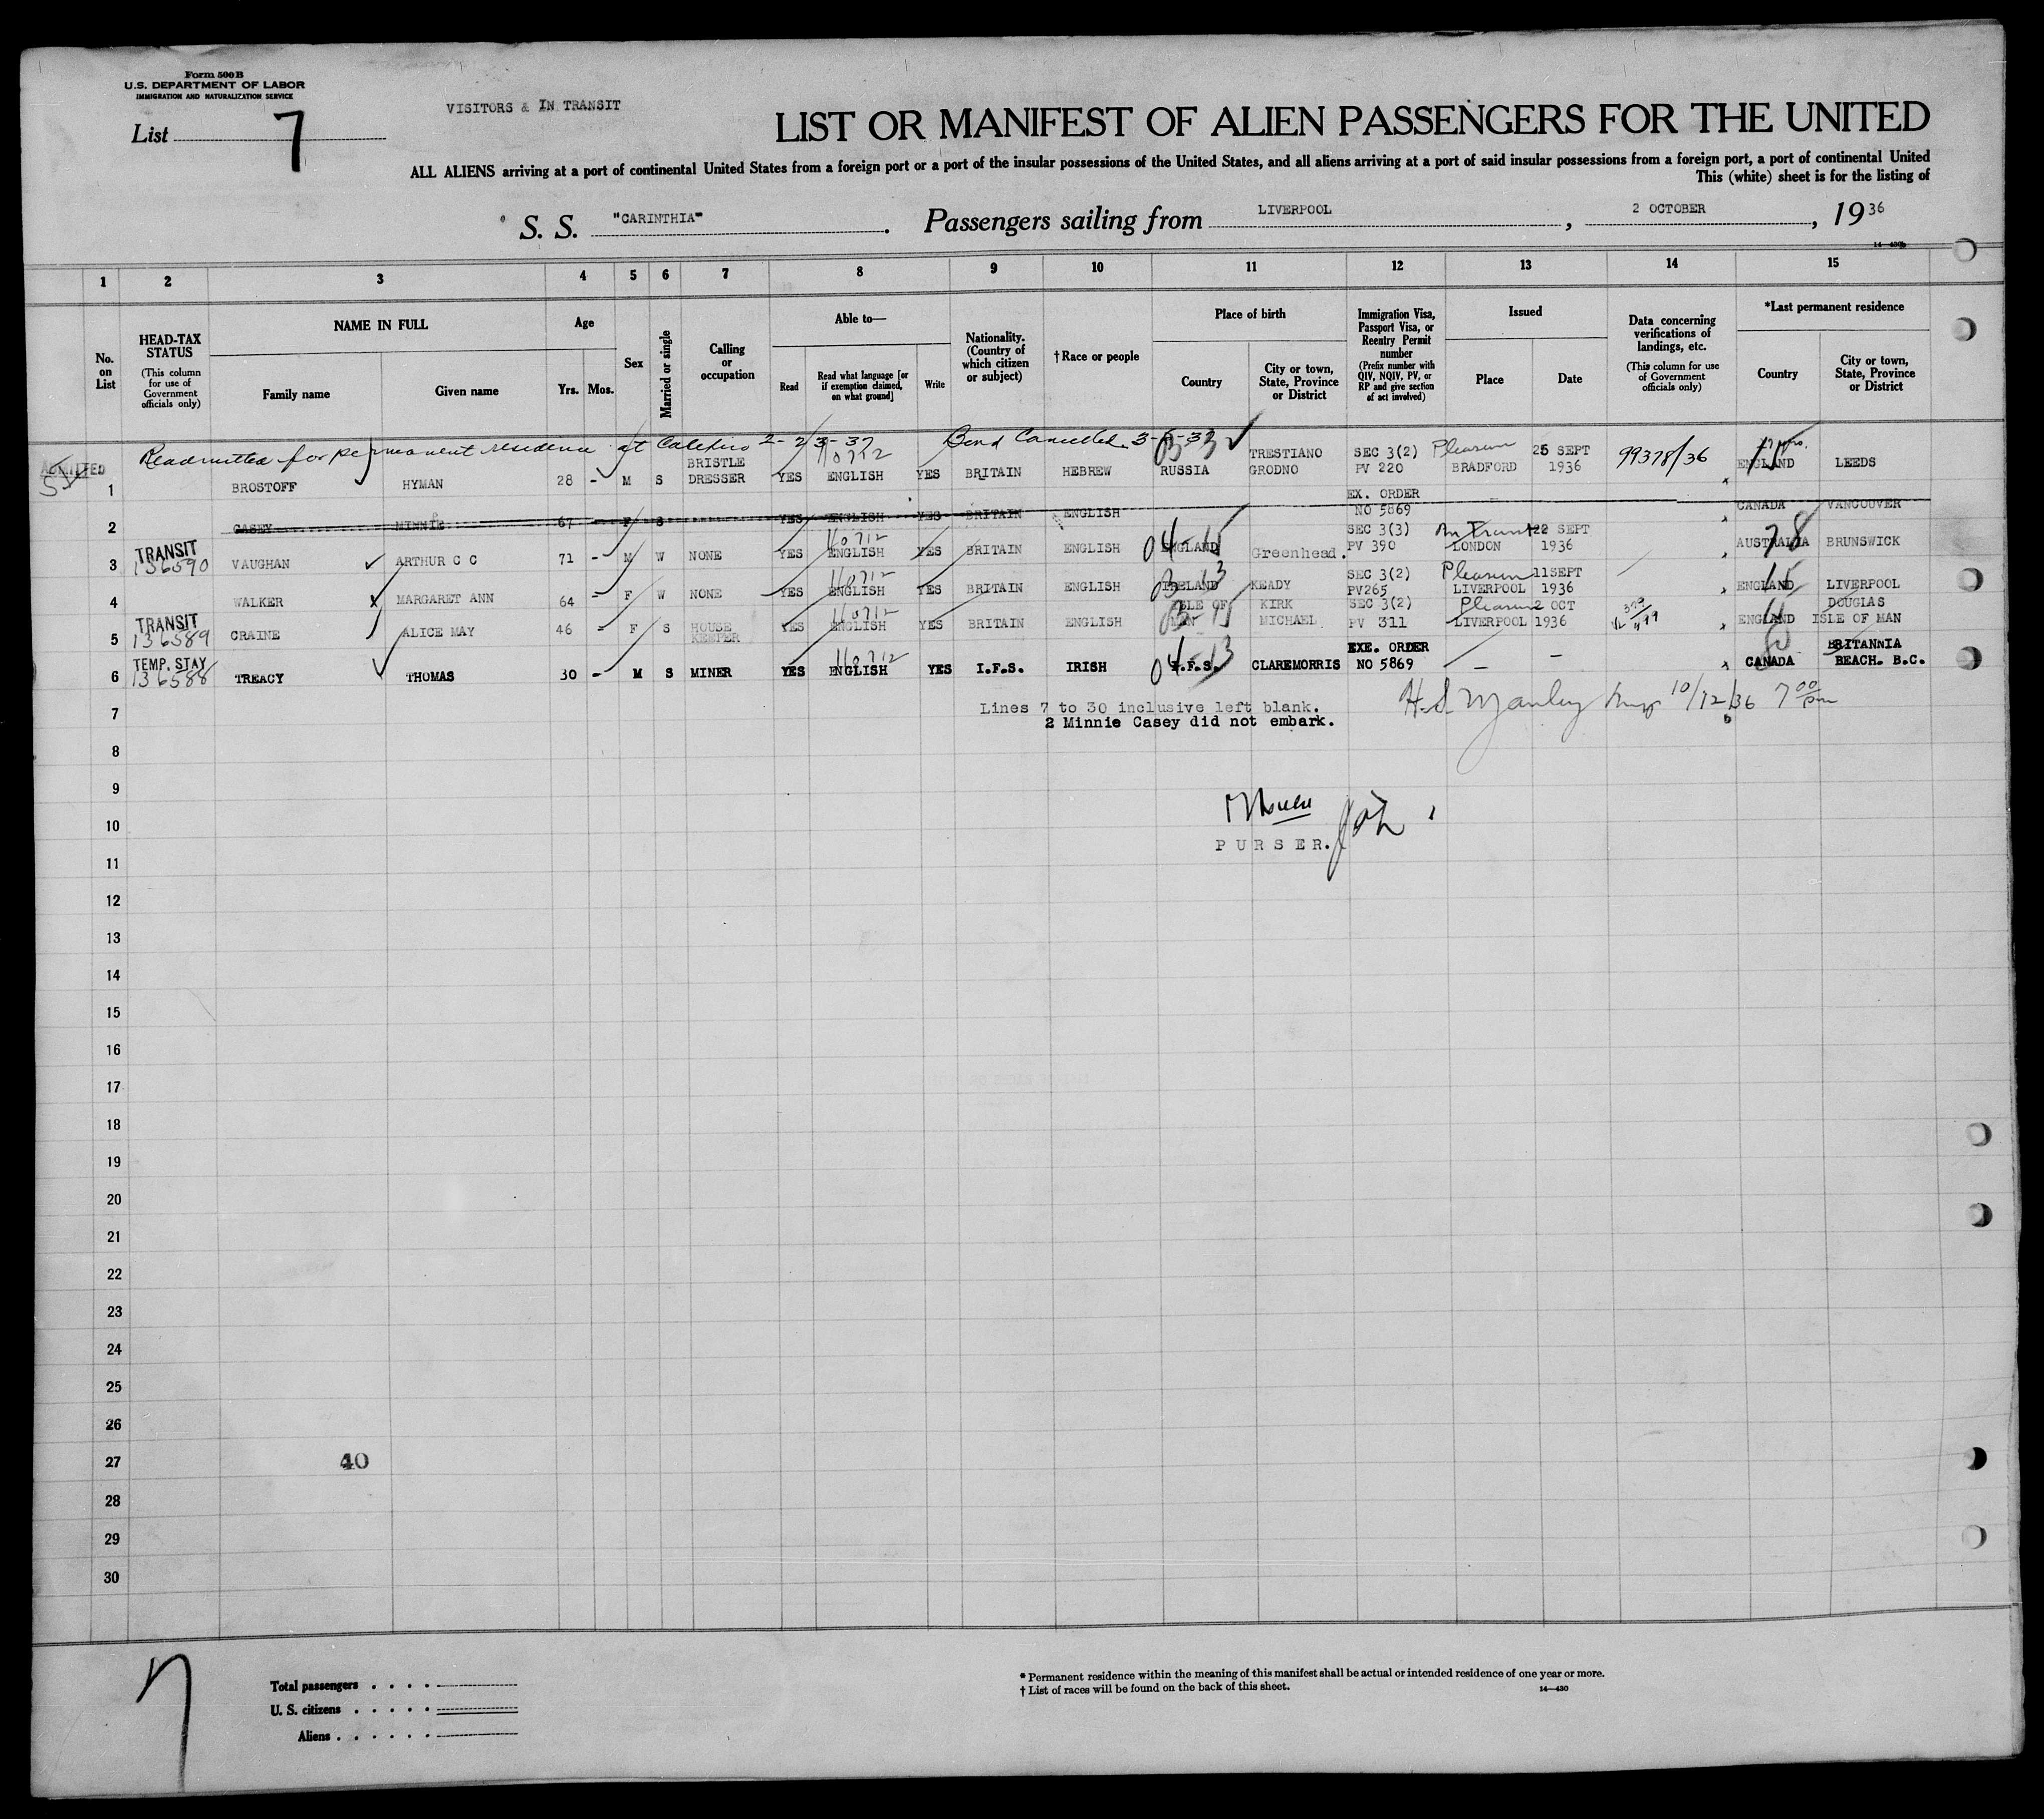 Form 500 B
U.S. DEPARTMENT OF LABOR
IMMIGRATION AND NATURALIZATION SERVICE
VISITORS & IN TRANSIT
List 7
LIST OR MANIFEST OF ALIEN PASSENGERS FOR THE UNITED
ALL ALIENS arriving at a port of continental United States from a foreign port or a port of the insular possessions of the United States, and all aliens arriving at a port of said insular possessions from a foreign port, a port of continental United
This (white) sheet is for the listing of
S. S. "CARINTHIA". Passengers sailing from LIVERPOOL, 2 OCTOBER, 1936
1 2 3 4 5 6 7 8 9 10 11 12 13 14 15
No. on List
HEAD-TAX STATUS (This column for use of Government officials only)
NAME IN FULL Family name Given name
Age Yrs. Mos.
Sex
Married or single
Calling or occupation
Able to— Read Read what language [or if exemption claimed, on what ground] Write
Nationality. (Country of which citizen or subject)
† Race or people
Place of birth Country City or town, State, Province or District
Immigration Visa, Passport Visa, or Reentry Permit number (Prefix number with QIV, NQIV, PV, or RP and give section of act involved)
Issued Place Date
Data concerning verifications of landings, etc. (This column for use of Government officials only)
*Last permanent residence Country City or town, State, Province or District
Readmitted for permanent residence at Calexico 2-23-37 Bond Cancelled 3-5-37
ADMITTED 1 BROSTOFF HYMAN 28 - M S BRISTLE DRESSER YES ENGLISH YES BRITAIN HEBREW RUSSIA TRESTIANO GRODNO SEC 3(2) PV 220 Pleasure BRADFORD 25 SEPT 1936 99378/36 ENGLAND LEEDS
2 CASEY MINNIE 67 F S YES ENGLISH YES BRITAIN ENGLISH EX. ORDER NO 5869 CANADA VANCOUVER
TRANSIT 136590 3 VAUGHAN ARTHUR C C 71 - M W NONE YES 110712 ENGLISH YES BRITAIN ENGLISH 04-15 ENGLAND Greenhead. SEC 3(3) PV 390 In Transit LONDON 22 SEPT 1936 AUSTRALIA 28 BRUNSWICK
4 WALKER MARGARET ANN 64 - F W NONE YES 110712 ENGLISH YES BRITAIN ENGLISH IRELAND KEADY SEC 3(2) PV265 Pleasure LIVERPOOL 11SEPT 1936 ENGLAND 15 LIVERPOOL
TRANSIT 136589 5 CRAINE ALICE MAY 46 - F S HOUSE KEEPER YES 110712 ENGLISH YES BRITAIN ENGLISH ISLE OF MAN KIRK MICHAEL SEC 3(2) PV 311 Pleasure LIVERPOOL 2 OCT 1936 ENGLAND DOUGLAS ISLE OF MAN
TEMP. STAY 136588 6 TREACY THOMAS 30 - M S MINER YES 110712 ENGLISH YES I.F.S. IRISH 04-13 I.F.S. CLAREMORRIS EXE. ORDER NO 5869 — — CANADA BRITANNIA BEACH. B.C.
7 Lines 7 to 30 inclusive left blank. H.S. Manley Insp 10/12/36 7 00 pm
2 Minnie Casey did not embark.
8
9
10
PURSER.
11
12
13
14
15
16
17
18
19
20
21
22
23
24
25
26
27 40
28
29
30
7
Total passengers . . . .
U. S. citizens . . . . .
Aliens . . . . . .
* Permanent residence within the meaning of this manifest shall be actual or intended residence of one year or more.
† List of races will be found on the back of this sheet.
14—430